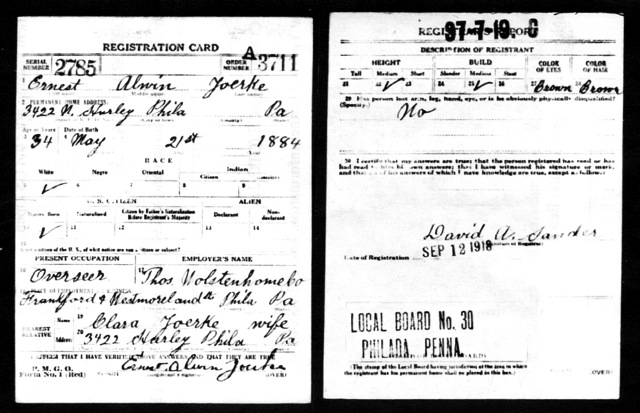 REGISTRATION CARD
SERIAL NUMBER 2785
ORDER NUMBER A 3711
1 Ernest Alwin Joerke
2 PERMANENT HOME ADDRESS:
3422 N. Hurley Phila Pa
Age in Years Date of Birth
34 May 21st 1884
RACE
White Negro Oriental Indian
5 ✓ 6 7 8 9
U. S. CITIZEN ALIEN
Native Born Naturalized Citizen by Father's Naturalization Before Registrant's Majority Declarant Non-declarant
10 ✓ 11 12 13 14
15 If not a citizen of the U. S., of what nation are you a citizen or subject?
PRESENT OCCUPATION EMPLOYER'S NAME
16 Overseer 17 Thos. Wolstenholme Co
18 PLACE OF EMPLOYMENT OR BUSINESS
Frankford & Westmoreland St Phila Pa
NEAREST RELATIVE
Name 19 Clara Joerke wife
Address 20 3422 Hurley Phila Pa
I AFFIRM THAT I HAVE VERIFIED ABOVE ANSWERS AND THAT THEY ARE TRUE
P. M. G. O.
Form No. 1 (Red) Ernest Alwin Joerke (OVER)
REGISTRAR'S REPORT
37-7-19 C
DESCRIPTION OF REGISTRANT
HEIGHT BUILD COLOR OF EYES COLOR OF HAIR
Tall Medium Short Slender Medium Stout
21 22 ✓ 23 24 25 ✓ 26 27 Brown 28 Brown
29 Has person lost arm, leg, hand, eye, or is he obviously physically disqualified?
(Specify.) No
30 I certify that my answers are true; that the person registered has read or has had read to him his own answers; that I have witnessed his signature or mark, and that all of his answers of which I have knowledge are true, except as follows:
David A. Sander
(Signature of Registrar)
Date of Registration SEP 12 1918
LOCAL BOARD No. 30
PHILADA, PENNA.
(The stamp of the Local Board having jurisdiction of the area in which the registrant has his permanent home shall be placed in this box.)
(OVER)